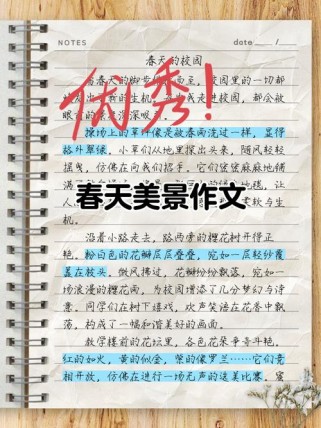 NOTES
date
春天的校园
优秀!
操场上的草坪像是被春雨洗过一样，显得
格外翠绿，小草们从地里探出头来，随风轻轻
摇曳，仿佛在向我们招手。它们密密麻麻地铺
春天美景作文
沿着小路走去，路两旁的樱花树开得正
艳，粉白色的花瓣层层叠叠，宛如一层轻纱覆
盖在枝头。微风拂过，花瓣纷纷飘落，宛如一
场浪漫的樱花雨，为校园增添了几分梦幻与诗
意。同学们在树下嬉戏，欢声笑语在花香中飘
荡，构成了一幅和谐美好的画面。
教学楼前的花坛里，各色花朵争奇斗艳，
红的如火，黄的似金，紫的像罗兰……它们竞
相开放，仿佛在进行一场无声的选美比赛。蜜